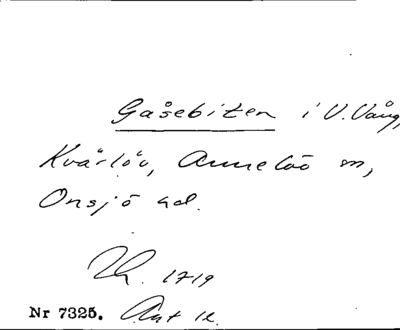 Gåsebiten i V. Vång,
Kvärlöv, Annelöv sn,
Onsjö hd.
1719
Nr 7325. Ant 12.